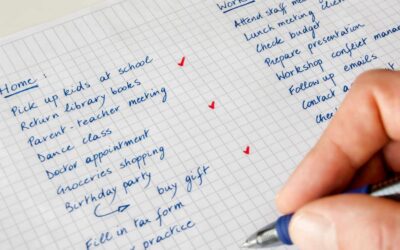 Home:
Pick up kids at school
Return library books
Parent-teacher meeting
Dance class
Doctor appointment
Groceries shopping
Birthday party
buy gift
Fill in tax form
practice
Attend staff
Lunch meeting
Check budget
Prepare presentation
Workshop conflict
Follow up emails
Contact